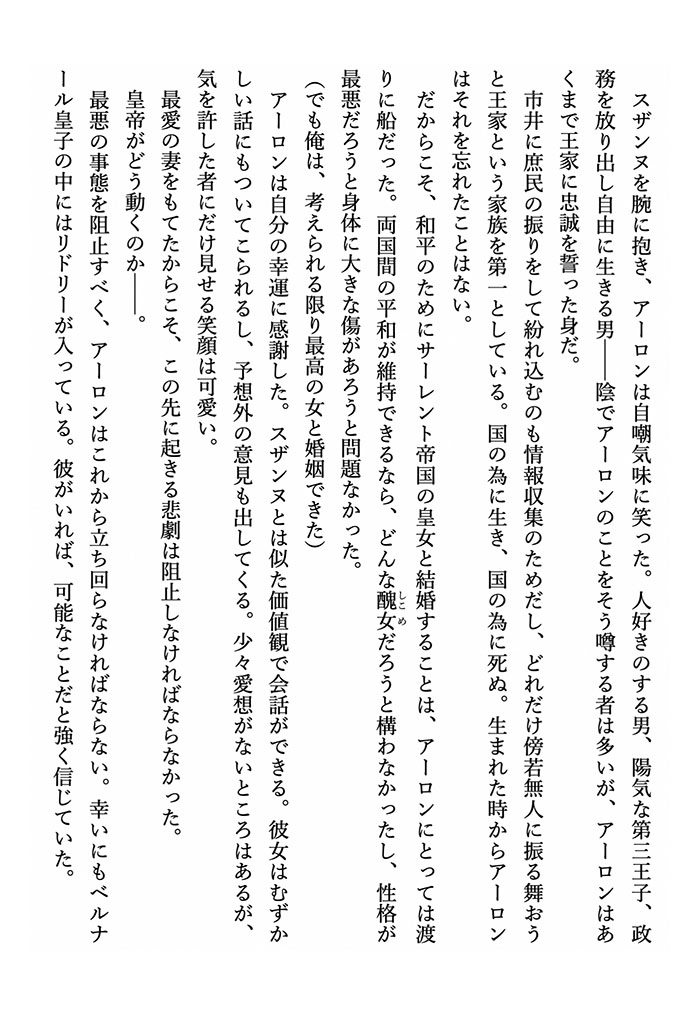 スザンヌを腕に抱き、アーロンは自嘲気味に笑った。人好きのする男、陽気な第三王子、政
務を放り出し自由に生きる男――陰でアーロンのことをそう噂する者は多いが、アーロンはあ
くまで王家に忠誠を誓った身だ。
　市井に庶民の振りをして紛れ込むのも情報収集のためだし、どれだけ傍若無人に振る舞おう
と王家という家族を第一としている。国の為に生き、国の為に死ぬ。生まれた時からアーロン
はそれを忘れたことはない。
　だからこそ、和平のためにサーレント帝国の皇女と結婚することは、アーロンにとっては渡
りに船だった。両国間の平和が維持できるなら、どんな醜女しこめだろうと構わなかったし、性格が
最悪だろうと身体に大きな傷があろうと問題なかった。
（でも俺は、考えられる限り最高の女と婚姻できた）
　アーロンは自分の幸運に感謝した。スザンヌとは似た価値観で会話ができる。彼女はむずか
しい話にもついてこられるし、予想外の意見も出してくる。少々愛想がないところはあるが、
気を許した者にだけ見せる笑顔は可愛い。
　最愛の妻をもてたからこそ、この先に起きる悲劇は阻止しなければならなかった。
　皇帝がどう動くのか――。
　最悪の事態を阻止すべく、アーロンはこれから立ち回らなければならない。幸いにもベルナ
ール皇子の中にはリドリーが入っている。彼がいれば、可能なことだと強く信じていた。